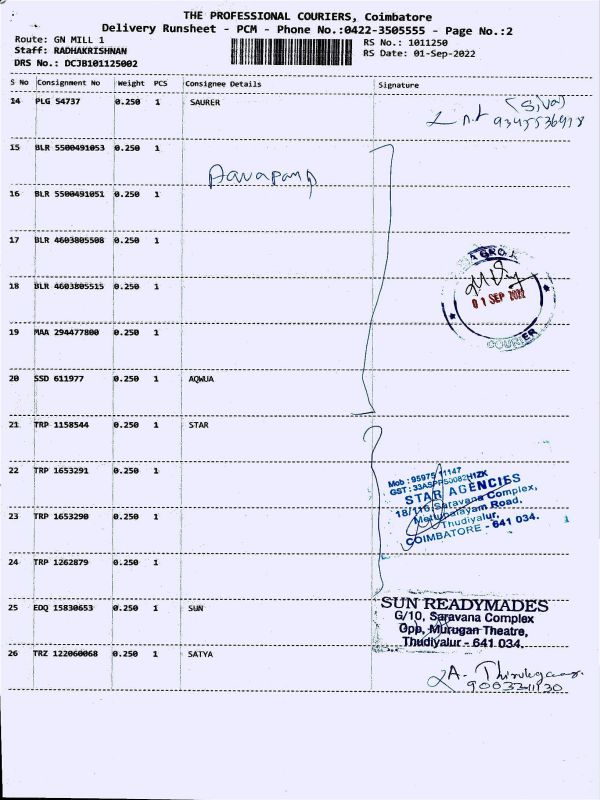 THE PROFESSIONAL COURIERS, Coimbatore
Delivery Runsheet - PCM - Phone No.:0422-3505555 - Page No.:2
Route: GN MILL 1
RS No.: 1011250
Staff: RADHAKRISHNAN
RS Date: 01-Sep-2022
DRS No.: DCJB101125002
S No Consignment No Weight PCS Consignee Details Signature
14 PLG 54737 0.250 1 SAURER
(Siva)
15 BLR 5500491053 0.250 1
16 BLR 5500491051 0.250 1
17 BLR 4603805508 0.250 1
18 BLR 4603805515 0.250 1
01 SEP 2022
19 MAA 294477800 0.250 1
COURIER
20 SSD 611977 0.250 1 AQWUA
21 TRP 1158544 0.250 1 STAR
22 TRP 1653291 0.250 1
Mob : 95975 11147
STAR AGENCIES
18/116, Saravana Complex,
Mettupalayam Road,
Thudiyalur,
COIMBATORE - 641 034.
23 TRP 1653290 0.250 1
24 TRP 1262879 0.250 1
25 EDQ 15830653 0.250 1 SUN
SUN READYMADES
G/10, Saravana Complex
Opp, Murugan Theatre,
Thudiyalur - 641 034.
26 TRZ 122060068 0.250 1 SATYA